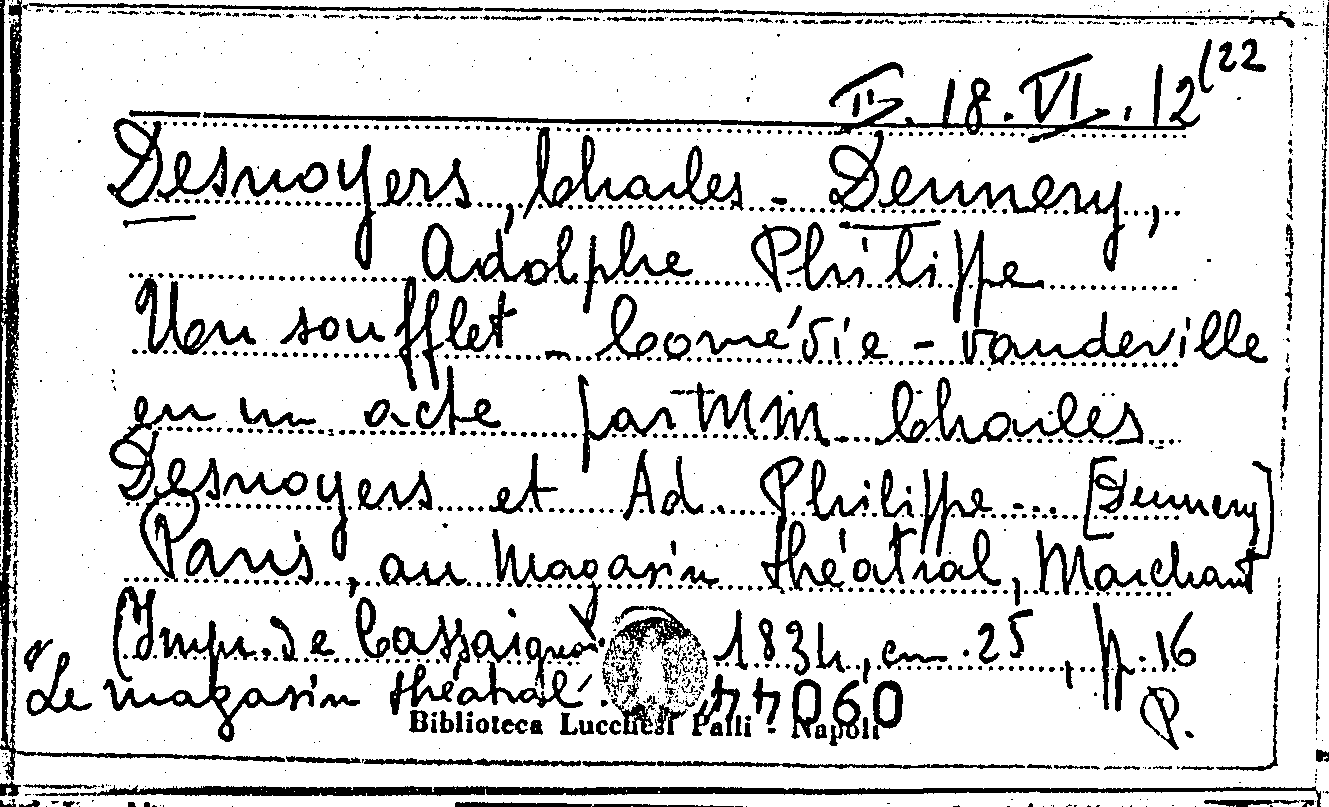 II. 18. VI. 12(22
Desnoyers, Charles - Dennery,
Adolphe Philippe
Un soufflet - Comédie - vaudeville
en un acte par MM. Charles
Desnoyers et Ad. Philippe... [Dennery]
Paris, au Magasin théatral, Marchant
(Impr. de 1834, cm. 25, pp. 16
"Le magasin théatral". 09044
P.
Biblioteca Lucchesi Palli - Napoli